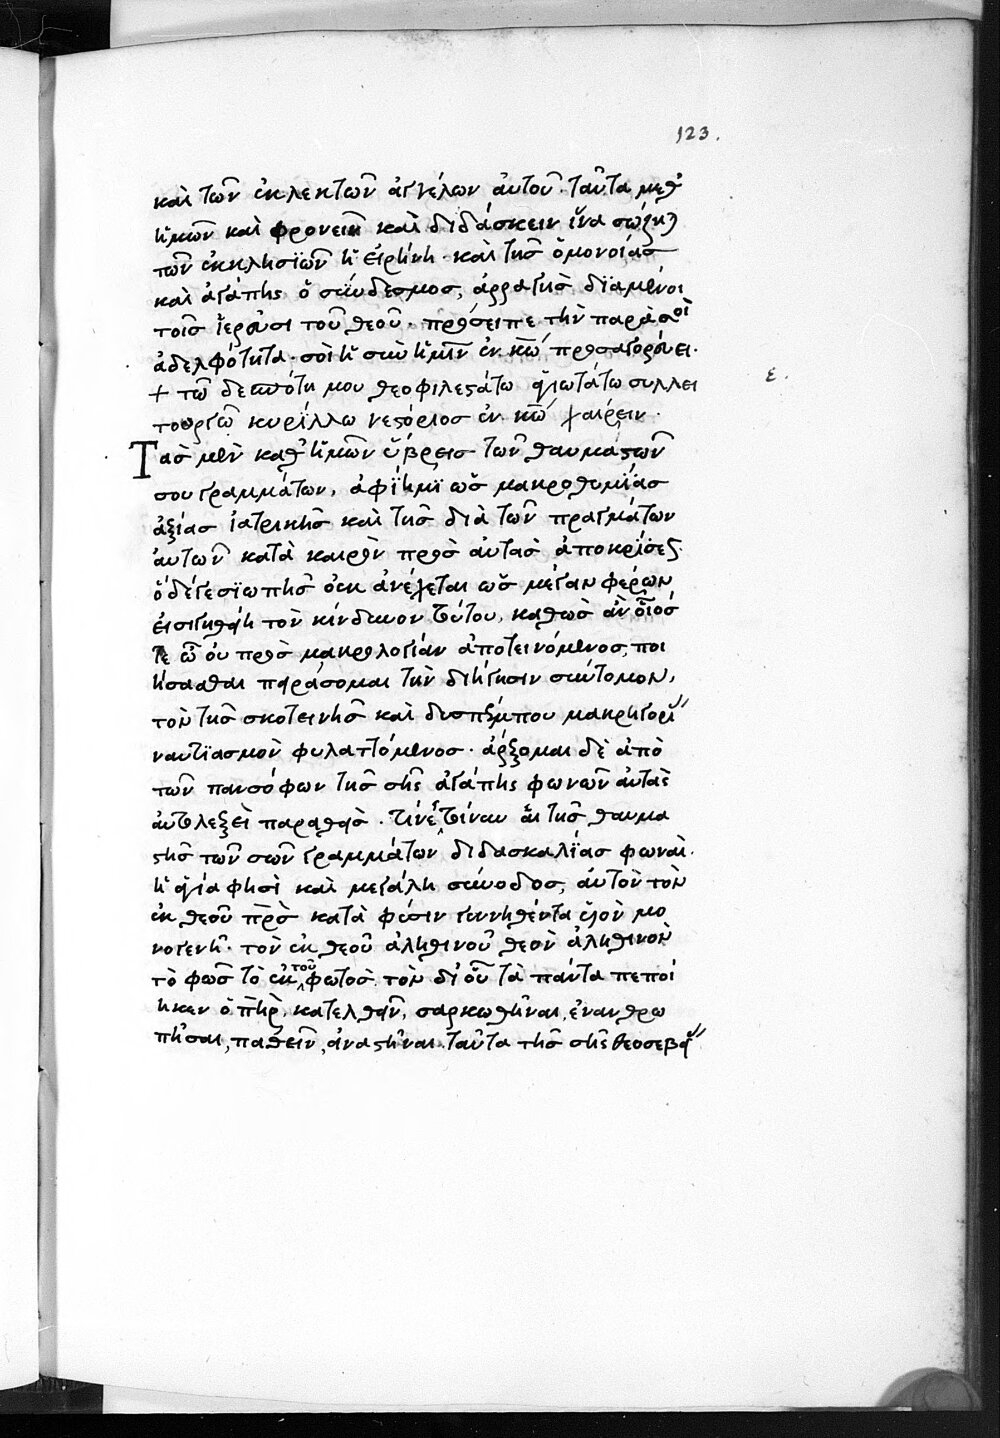 123.
καὶ τῶν ἐκλεκτῶν ἀγγέλων αὐτοῦ· ταῦτα μεθ'
ἡμῶν καὶ φρονεῖν καὶ διδάσκειν ἵνα σώζηται
τῶν ἐκκλησϊῶν ἡ εἰρήνη· καὶ τῆς ὁμονοίας
καὶ ἀγάπης ὁ σύνδεσμος, ἀρραγὴς δϊαμένοι
τοῖς ἱεροῦσι τοῦ θεοῦ· πρόσειπε τὴν παρὰ σοὶ
ἀδελφότητα· σὲ ἡ σὺν ἡμῖν ἐν κῶ προσαγορεύει.
+ τῶ δεσπότη μου θεοφιλεστάτω ἁγιωτάτω συλλει
ε.
τουργῶ κυρίλλω νεστόριος ἐν κῶ χαίρειν·
Τὰς μὲν καθ' ἡμῶν ὕβρεις τῶν θαυμαστῶν
σου γραμμάτων, ἀφΐημι ὡς μακροθυμΐας
ἀξίας ἰατρικῆς καὶ τῆς διὰ τῶν πραγμάτων
αὐτῶν κατὰ καιρὸν πρὸς αὐτὰς ἀποκρίσεως.
ὃ δέ γε σϊωπῆς οὐκ ἀνέχεται ὡς μέγαν φέρων
εἰ σιγηθείη τὸν κίνδυνον τούτου, καθὼς ἂν οἷός
τε ὦ οὐ πρὸς μακρολογίαν ἀποτεινόμενος, ποι
ήσασθαι πειράσομαι τὴν διήγησιν σύντομον,
τὸν τῆς σκοτεινῆς καὶ δυσπέμπου μακρηγορί
ναυτϊασμὸν φυλαττόμενος· ἄρξομαι δὲ ἀπὸ
τῶν πανσόφων τῆς σῆς ἀγάπης φωνῶν αὐτὰς
αὐτολεξεὶ παραθείς· τίνες τοίνυν αἱ τῆς θαυμα
στῆς τῶν σῶν γραμμάτων διδασκαλΐας φωναί·
ἡ ἁγία φησὶ καὶ μεγάλη σύνοδος, αὐτὸν τὸν
ἐκ θεοῦ πρς κατὰ φύσιν γεννηθέντα υἱὸν μο
νογενῆ· τὸν ἐκ θεοῦ ἀληθινοῦ θεὸν ἀληθινὸν
τὸ φῶς τὸ ἐκ τοῦ φωτὸς τὸν δι' οὗ τὰ πάντα πεποί
ηκεν ὁ πηρ, κατελθεῖν, σαρκωθῆναι, ἐνανθρω
πῆσαι, παθεῖν, ἀναστῆναι· ταῦτα τῆς σῆς θεοσεβεί